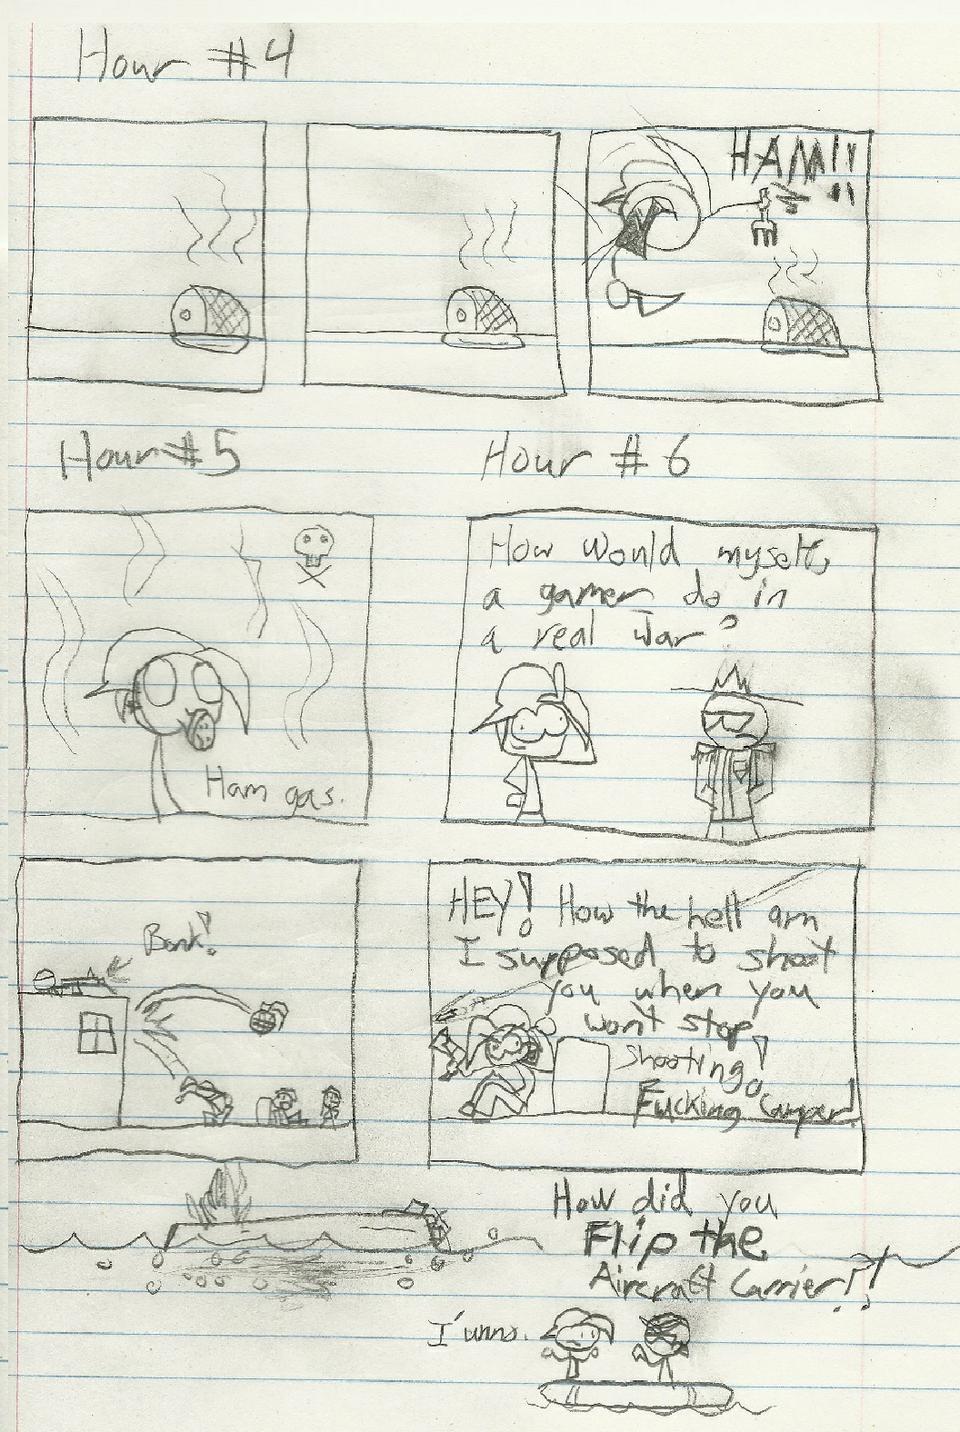 Hour #4
HAM!!
Hour #5
Hour #6
Ham gas.
How would myself,
a gamer do in
a real war?
Bonk!
HEY! How the hell am
I supposed to shoot
you when you
won't stop
shooting!
Fucking Camper!
How did you
Flip the
Aircraft Carrier!?
I'unno.